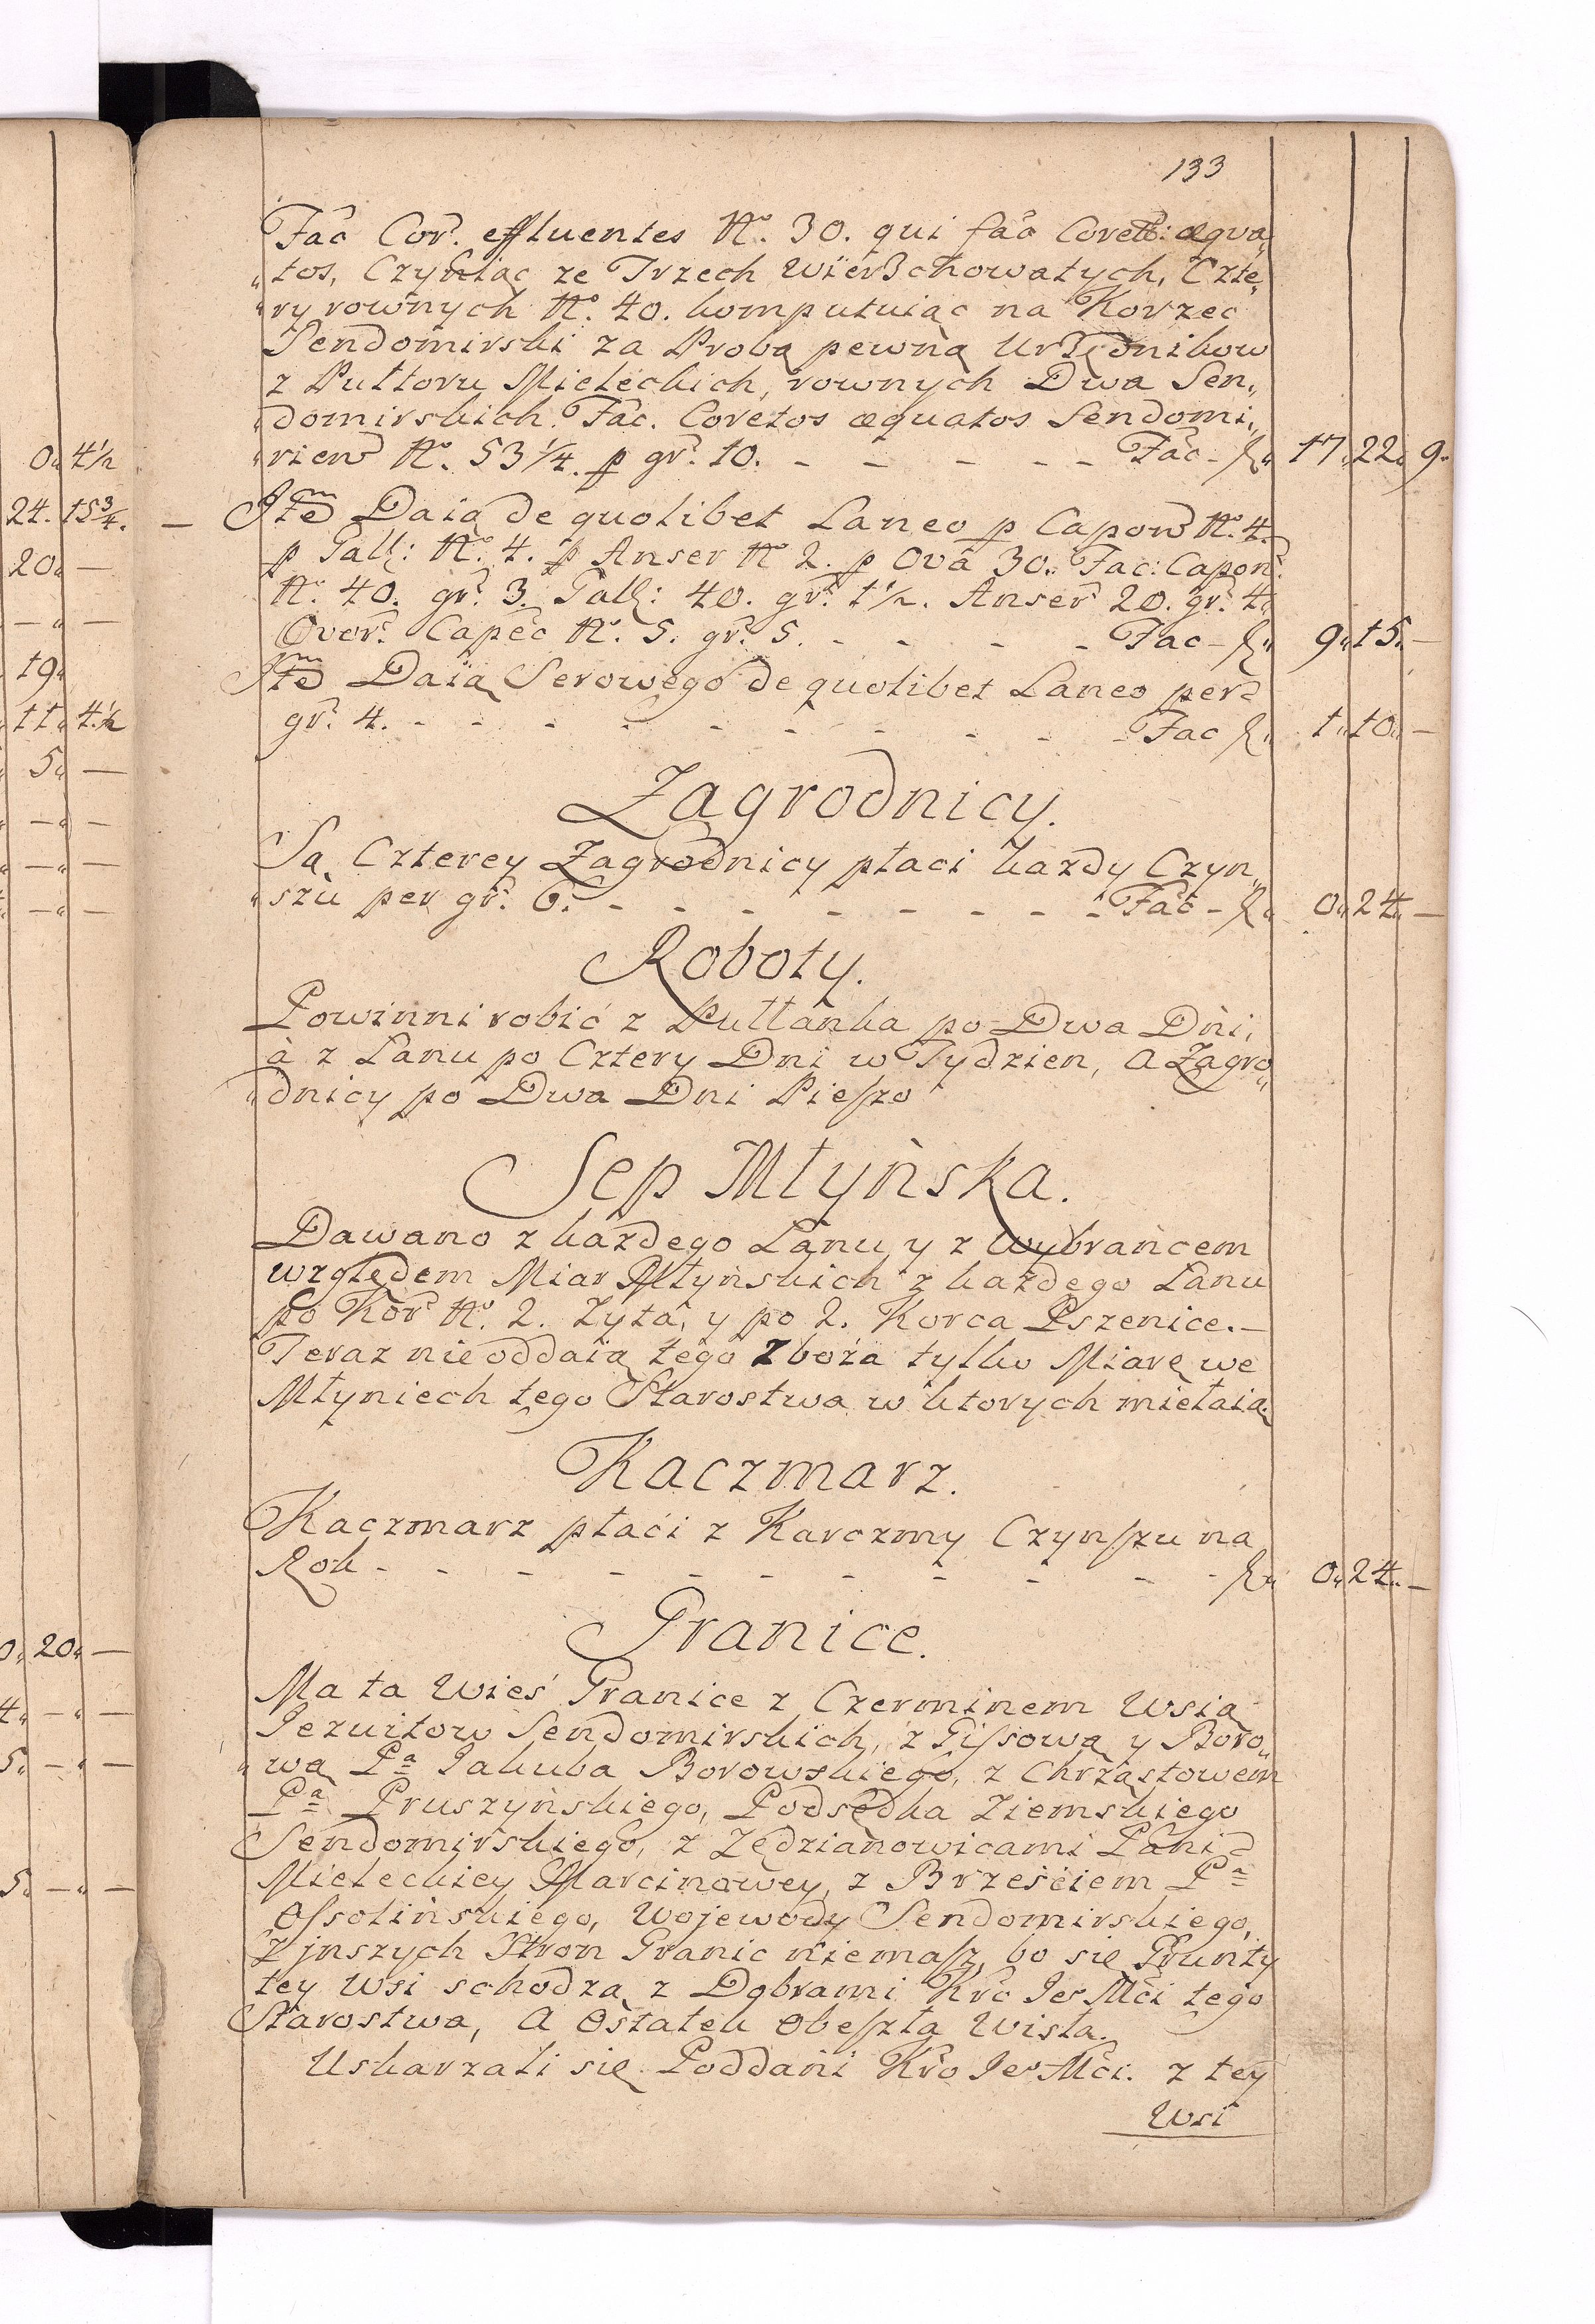 133
Fac Cor. effluentes No. 30. qui fac Coret: æqua„
„tos, Czyniąc ze Trzech Wierzchowatych, Czte„
„ry rownych No. 40. komputuiąc na Korzec
Sendomirski za Probą pewną Urzędnikow
z Pułtoru Mieleckich, rownych Dwa Sen„
„domirskich. Fac. Coretos æquatos Sendomi„
„rien No. 53 1/4. p gr. 10. - - - - - Fac - f„ 17„ 22„ 9„
— Itm Daią de quolibet Laneo p Capon No. 4.
p Gall: No. 4. p Anser No 2. p Ova 30. Fac: Capon.
No. 40. gr. 3. Gall: 40. gr. 1 1/2. Anser 20. gr. 4„
Ovor. Capec No. 5. gr. 5. - - - - Fac - f„ 9„ 15„ —
Itm Daią Serowego de quolibet Laneo per
gr. 4. - - - - - - - - - Fac f„ 1„ 10„ —
Zagrodnicy.
Są Czterey Zagrodnicy płaci kazdy Czyn„
„szu per gr. 6. - - - - - - - - Fac - f„ 0„ 24„ —
Roboty.
Powinni robić z Pułłanka po Dwa Dni,
à z Łanu po Cztery Dni w Tydzien, A Zagro„
„dnicy po Dwa Dni Pieszo
Sep Młyńska.
Dawano z kazdego Łanu y z Wybrańcem
względem Miar Młyńskich z każdego Łanu
po Kor No. 2. Zyta, y po 2. Korca Pszenice. —
Teraz nie oddaią tego Zboża tylko Miarę we
Młyniech tego Starostwa w ktorych mielaią.
Kaczmarz.
Kaczmarz płaći z Karczmy Czynszu na
Rok - - - - - - - - - - - f„ 0„ 24„ —
Granice.
Ma ta Wieś Granice z Czerminem Wsią
Jezuitow Sendomirskich, z Gissową y Boro„
„wą Pa Jakuba Borowskiego, z Chrząstowem
Pa Pruszyńskiego, Podsędka Ziemskiego
Sendomirskiego, z Zędzianowicami Pani
Mieleckiey Marcinowey, z Brześciem Pa
Ossolińskiego, Wojewody Sendomirskiego,
Z jnszych Stron Granic niemasz, bo się Grunty
tey Wsi schodzą z Dobrami Kro Je Mći tego
Starostwa, A Ostatek Obeszła Wisła.
Uskarzali się Poddani Kro Je Mći. z tey
Wsi
0„ 4 1/2
24. 15 3/4.
20„ —
— „ —
19„
11„ 4 1/2
5„ —
— „ —
— „ —
— „ —
0„ 20„ —
4„ — „ —
5„ — „ —
5„ — „ —